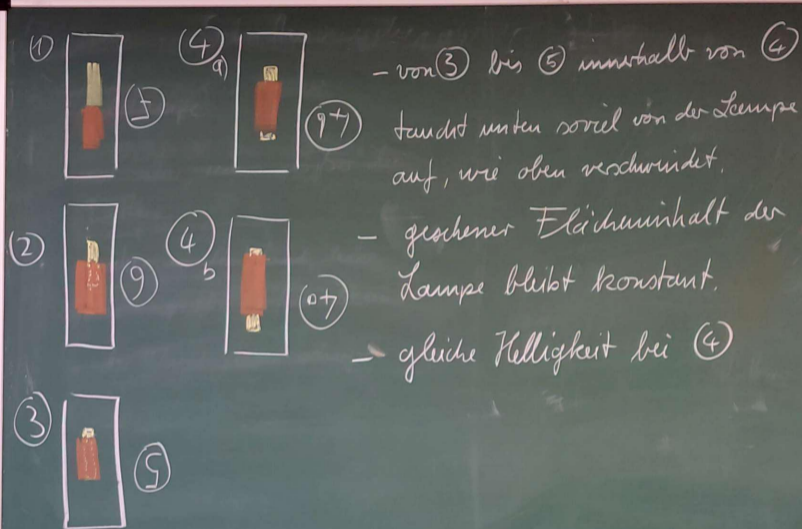 ①
⑦
②
⑥
③
⑤
④
a)
4b
④
b
4a
- von ③ bis ⑤ innerhalb von ④
taucht unten soviel von der Lampe
auf, wie oben verschwindet.
- gesehener Flächeninhalt der
Lampe bleibt konstant.
- gleiche Helligkeit bei ④